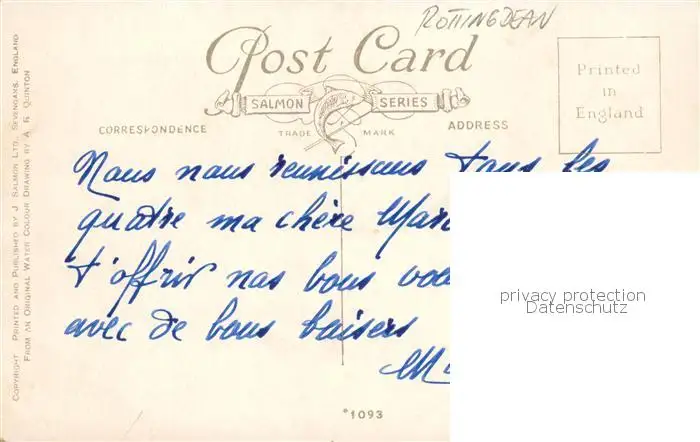 ROTTINGDEAN
Post Card
SALMON SERIES
TRADE MARK
CORRESPONDENCE
ADDRESS
Printed
in
England
Nous nous reunissons tous les
quatre ma chère
t'offrir nos bons
avec de bons baisers
°1093
COPYRIGHT. PRINTED AND PUBLISHED BY J. SALMON LTD., SEVENOAKS, ENGLAND
FROM AN ORIGINAL WATER COLOUR DRAWING BY A. R. QUINTON
privacy protection
Datenschutz